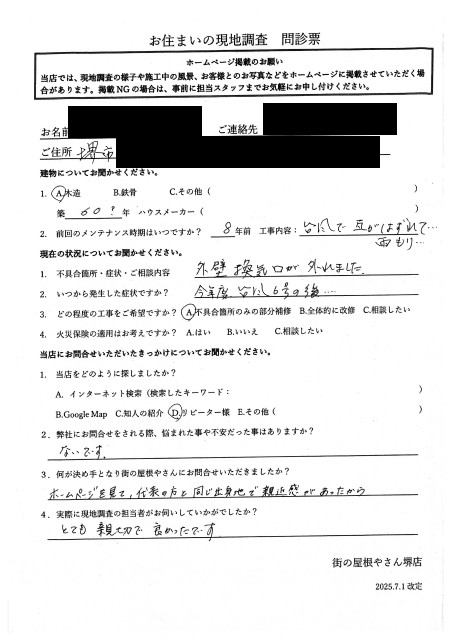 お住まいの現地調査 問診票
ホームページ掲載のお願い
当店では、現地調査の様子や施工中の風景、お客様とのお写真などをホームページに掲載させていただく場
合があります。掲載NGの場合は、事前に担当スタッフまでお気軽にお申し付けください。
お名前 ご連絡先
ご住所 堺市
建物についてお聞かせください。
1. A.木造 B.鉄骨 C.その他 ( )
築 60? 年 ハウスメーカー ( )
2. 前回のメンテナンス時期はいつですか? 8 年前 工事内容: 台風で瓦がはずれて…
雨もり…
現在の状況についてお聞かせください。
1. 不具合箇所・症状・ご相談内容 外壁換気口が外れました。
2. いつから発生した症状ですか? 今年度 台風6号の後….
3. どの程度の工事をご希望ですか? A.不具合箇所のみの部分補修 B.全体的に改修 C.相談したい
4. 火災保険の適用はお考えですか? A.はい B.いいえ C.相談したい
当店にお問合せいただいたきっかけについてお聞かせください。
1. 当店をどのように探しましたか?
A. インターネット検索（検索したキーワード: )
B.Google Map C.知人の紹介 D.リピーター様 E.その他 ( )
2. 弊社にお問合せをされる際、悩まれた事や不安だった事はありますか?
ないです。
3. 何が決め手となり街の屋根やさんにお問合せいただきましたか?
ホームページを見て、代表の方と同じ出身地で親近感があったから
4. 実際に現地調査の担当者がお伺いしていかがでしたか?
とても親切で良かったです
街の屋根やさん堺店
2025.7.1 改定